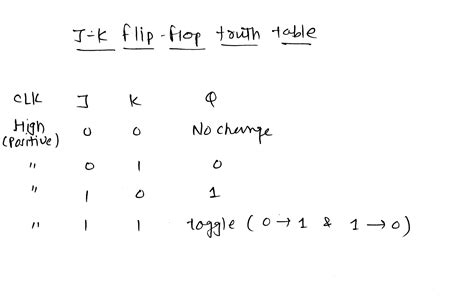 J-K flip-flop truth table
CLK J K Q
High (Positive) 0 0 No change
" 0 1 0
" 1 0 1
" 1 1 toggle ( 0 → 1 & 1 → 0 )